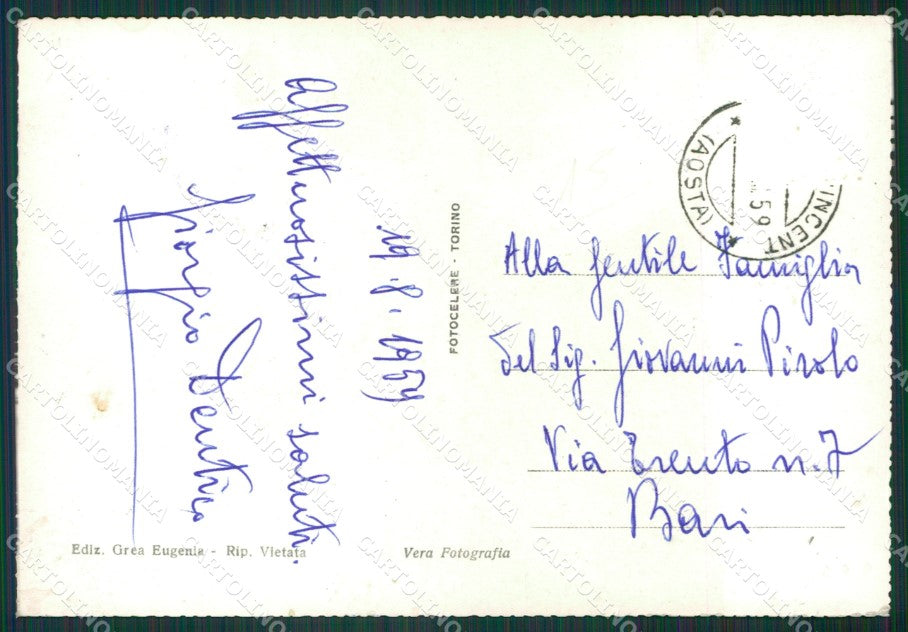 Affettuosissimi saluti.
Giorgio Dentico
19.8.1959
FOTOCELERE - TORINO
(AOSTA)
INCENT
59
Alla gentile Famiglia
del Sig. Giovanni Pirolo
Via Trento n. 7
Bari
Ediz. Grea Eugenia - Rip. Vietata
Vera Fotografia
CARTOLINOMANIA